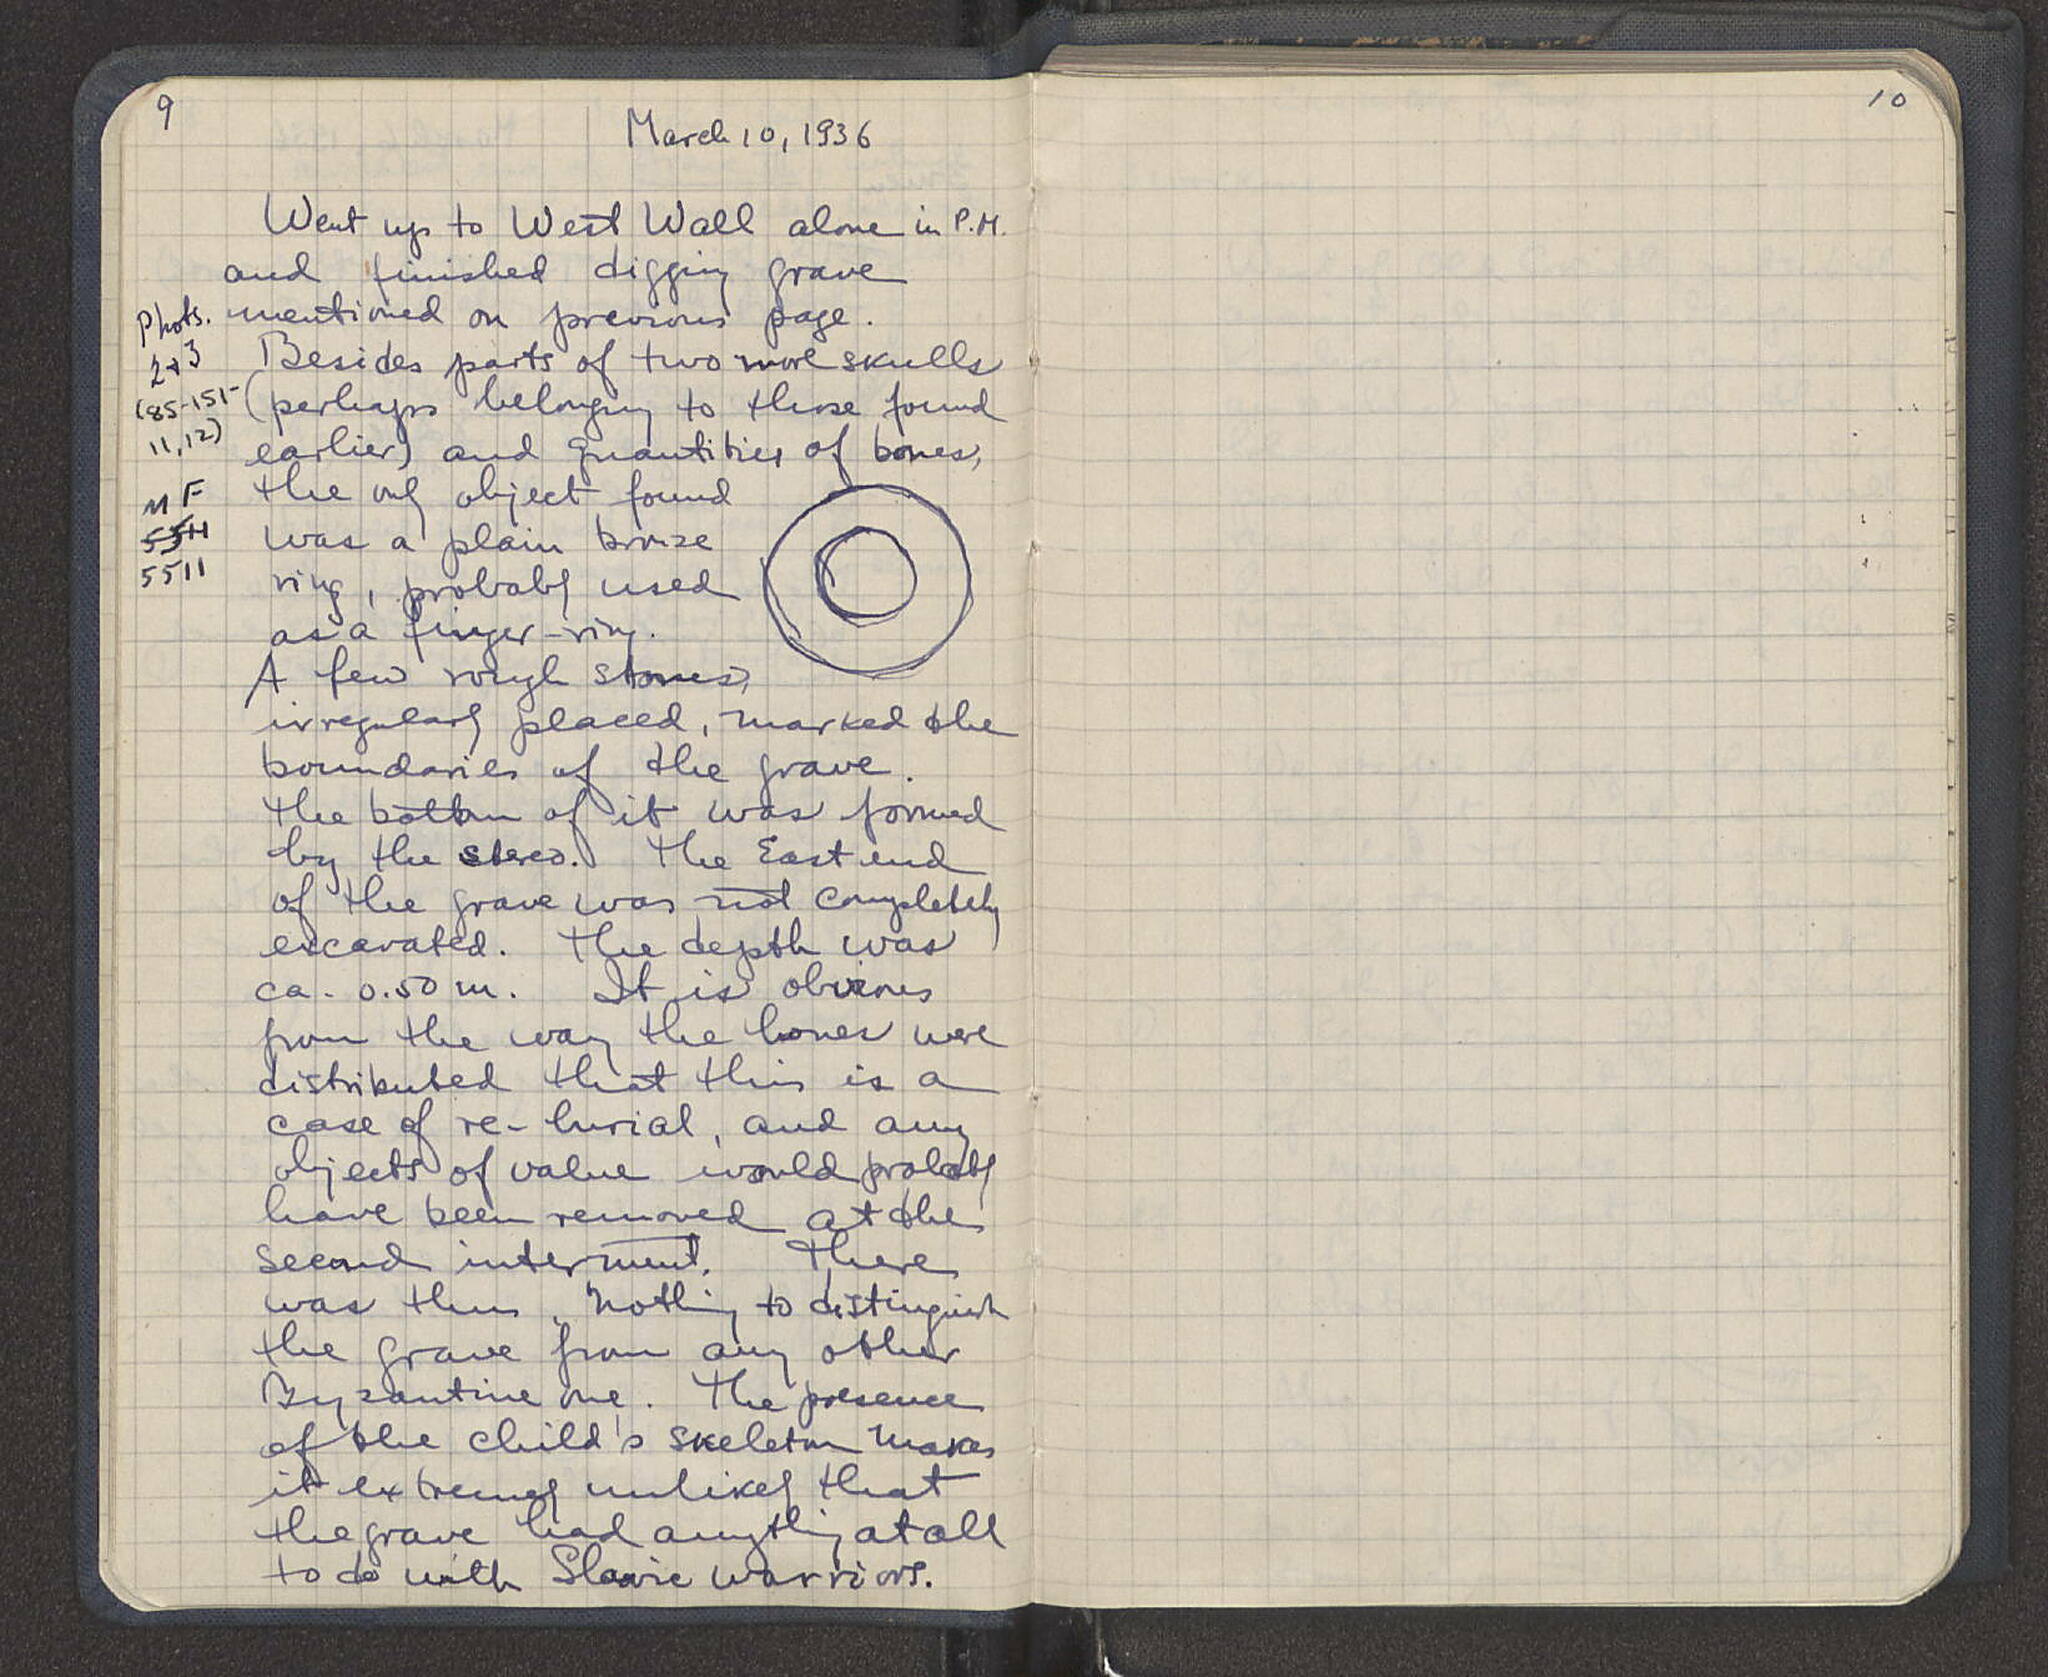 9
March 10, 1936
Went up to West Wall alone in P.M.
and finished digging grave
mentioned on previous page.
Besides parts of two more skulls
(perhaps belonging to those found
earlier) and quantities of bones,
the only object found
was a plain bronze
ring, probably used
as a finger-ring.
A few rough stones,
irregularly placed, marked the
boundaries of the grave.
The bottom of it was formed
by the stereo. The East end
of the grave was not completely
excavated. The depth was
ca. 0.50 m. It is obvious
from the way the bones were
distributed that this is a
case of re-burial, and any
objects of value would probably
have been removed at the
second interment. There
was thus, nothing to distinguish
the grave from any other
Byzantine one. The presence
of the child's skeleton makes
it extremely unlikely that
the grave had anything at all
to do with Slavic warriors.
Phots.
2+3
(85-151-
11, 12)
MF
5511
5511
10